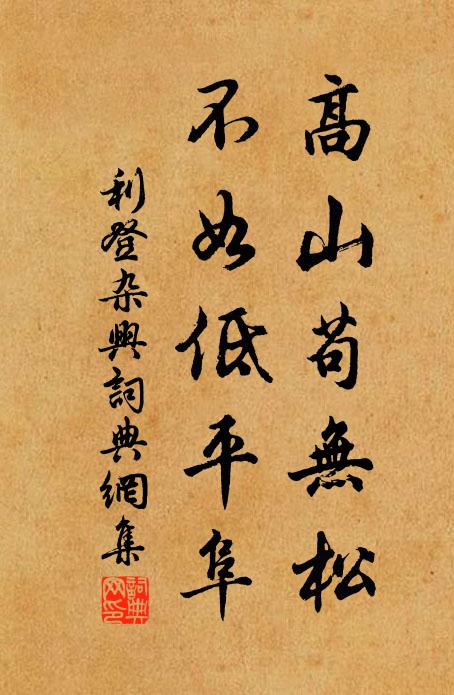 高山苟無松
不如低平阜
利登杂興詞典網集
詞典网印